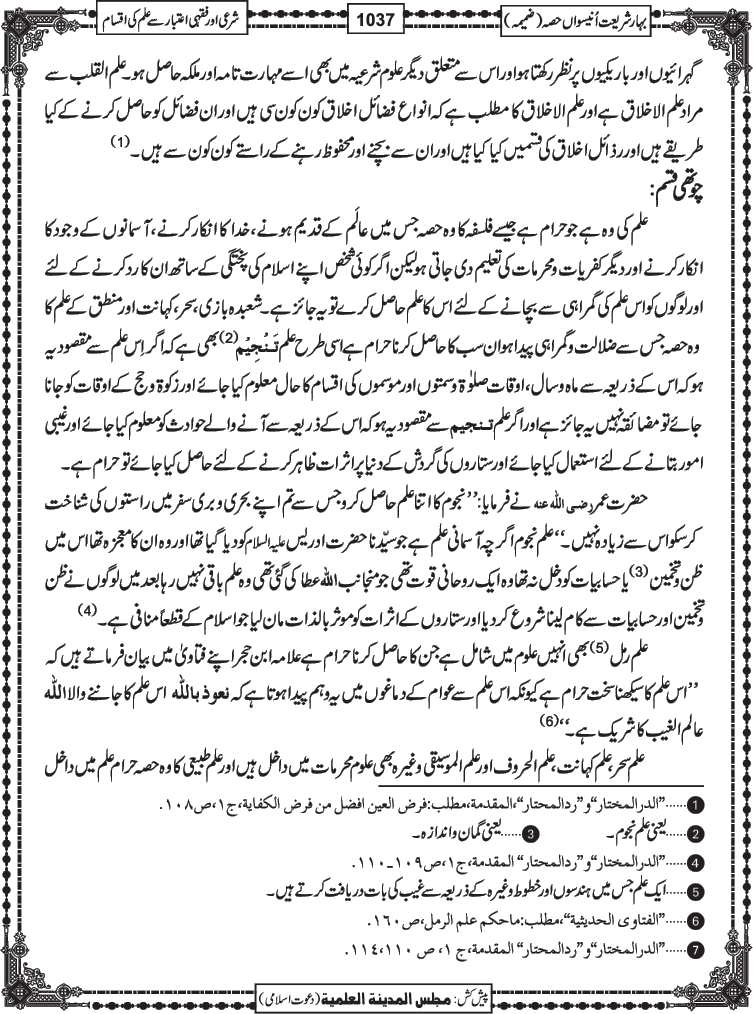 بہار شریعت اُنیسواں حصہ (ضمیمہ)
1037
شرعی اور فقہی اعتبار سے علم کی اقسام
گہرائیوں اور باریکیوں پر نظر رکھتا ہو اور اس سے متعلق دیگر علوم شرعیہ میں بھی اسے مہارت تامہ اور ملکہ حاصل ہو۔ علم القلب سے
مراد علم الاخلاق ہے اور علم الاخلاق کا مطلب ہے کہ انواع فضائل اخلاق کون کون سی ہیں اور ان فضائل کو حاصل کرنے کے کیا
طریقے ہیں اور رذائل اخلاق کی قسمیں کیا کیا ہیں اور ان سے بچنے اور محفوظ رہنے کے راستے کون کون سے ہیں۔ (1)
چوتھی قسم:
علم کی وہ ہے جو حرام ہے جیسے فلسفہ کا وہ حصہ جس میں عالَم کے قدیم ہونے، خدا کا انکار کرنے، آسمانوں کے وجود کا
انکار کرنے اور دیگر کفریات و محرمات کی تعلیم دی جاتی ہو لیکن اگر کوئی شخص اپنے اسلام کی پختگی کے ساتھ ان کا رد کرنے کے لئے
اور لوگوں کو اس علم کی گمراہی سے بچانے کے لئے اس کا علم حاصل کرے تو یہ جائز ہے۔ شعبدہ بازی، سحر، کہانت اور منطق کے علم کا
وہ حصہ جس سے ضلالت و گمراہی پیدا ہو ان سب کا حاصل کرنا حرام ہے اسی طرح علم تَنْجِیْم (2) بھی ہے کہ اگر اِس علم سے مقصود یہ
ہو کہ اس کے ذریعہ سے ماہ و سال، اوقات صلوٰۃ و سمتوں اور موسموں کی اقسام کا حال معلوم کیا جائے اور زکوۃ و حج کے اوقات کو جانا
جائے تو مضائقہ نہیں یہ جائز ہے اور اگر علم تنجیم سے مقصود یہ ہو کہ اس کے ذریعہ سے آنے والے حوادث کو معلوم کیا جائے اور غیبی
امور بتانے کے لئے استعمال کیا جائے اور ستاروں کی گردش کے دنیا پر اثرات ظاہر کرنے کے لئے حاصل کیا جائے تو حرام ہے۔
حضرت عمر رضی اللہ عنہ نے فرمایا: ’’نجوم کا اتنا علم حاصل کرو جس سے تم اپنے بحری و بری سفر میں راستوں کی شناخت
کر سکو اس سے زیادہ نہیں۔‘‘ علم نجوم اگرچہ آسمانی علم ہے جو سیّدنا حضرت ادریس علیہ السلام کو دیا گیا تھا اور وہ ان کا معجزہ تھا اس میں
ظن و تخمین (3) یا حسابیات کو دخل نہ تھا وہ ایک روحانی قوت تھی جو منجانب اللہ عطا کی گئی تھی وہ علم باقی نہیں رہا بعد میں لوگوں نے ظن
و تخمین اور حسابیات سے کام لینا شروع کر دیا اور ستاروں کے اثرات کو موثر بالذات مان لیا جو اسلام کے قطعاً منافی ہے۔ (4)
علم رمل (5) بھی انہیں علوم میں شامل ہے جن کا حاصل کرنا حرام ہے علامہ ابن حجر اپنے فتاویٰ میں بیان فرماتے ہیں کہ
’’اس علم کا سیکھنا سخت حرام ہے کیونکہ اس علم سے عوام کے دماغوں میں یہ وہم پیدا ہوتا ہے کہ نعوذ باللہ اس علم کا جاننے والا اللہ
عالم الغیب کا شریک ہے۔‘‘ (6)
علم سحر، علم کہانت، علم الحروف اور علم الموسیقی وغیرہ بھی علوم محرمات میں داخل ہیں اور علم طبیعی کا وہ حصہ حرام علم میں داخل
1 ......"الدرالمختار" و "ردالمحتار"، المقدمة، مطلب: فرض العين افضل من فرض الكفاية، ج١، ص١٠٨.
2 ......یعنی علم نجوم۔ 3 ......یعنی گمان و اندازہ۔
4 ......"الدرالمختار" و "ردالمحتار" المقدمة، ج١، ص١٠٩-١١٠.
5 ......ایک علم جس میں ہندسوں اور خطوط وغیرہ کے ذریعہ سے غیب کی بات دریافت کرتے ہیں۔
6 ......"الفتاوى الحديثية"، مطلب: ماحكم علم الرمل، ص١٦٠.
7 ......"الدرالمختار" و "ردالمحتار" المقدمة، ج١، ص ١١٠، ١١٤.
پیش کش: مجلس المدینة العلمیة (دعوت اسلامی)